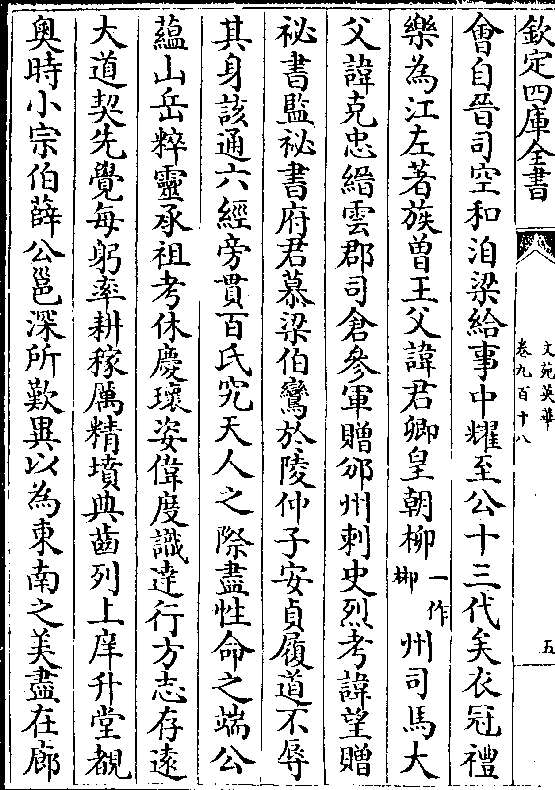 欽定四庫全書
文苑英華
卷九百十八
五
會自晉司空和洎梁給事中耀至公十三代矣衣冠禮
樂為江左著族曾王父諱君卿皇朝柳一作郴州司馬大
父諱克忠縉雲郡司倉參軍贈邠州刺史烈考諱望贈
祕書監祕書府君慕梁伯鸞於陵仲子安貞履道不辱
其身該通六經旁貫百氏究天人之際盡性命之端公
蘊山岳粹靈承祖考休慶瓌姿偉度識達行方志存遠
大道契先覺每躬率耕稼厲精墳典齒列上庠升堂覩
奥時小宗伯薛公邕深所歎異以為東南之美盡在廊